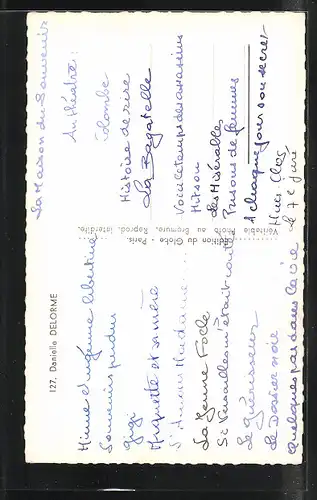 127. Danielle DELORME
Minne l'ingénue libertine
Souvenirs perdus
Gigi
Miquette et sa mère
L'Amour Madame
La Jeune Folle
Si Versailles m'était conté
Le Guérisseur
Le Dossier noir
Quelques pas dans la vie
Edition du Globe - Paris. Reprod. interdite.
Véritable Photo au Bromure.
La Maison du Souvenir
Au théatre:
Colombe
Histoire de rire
La Bagatelle
Voici le temps des assassins
Mitsou
Les Misérables
Prisons de femmes
A chaque jour son secret
le 7e juré